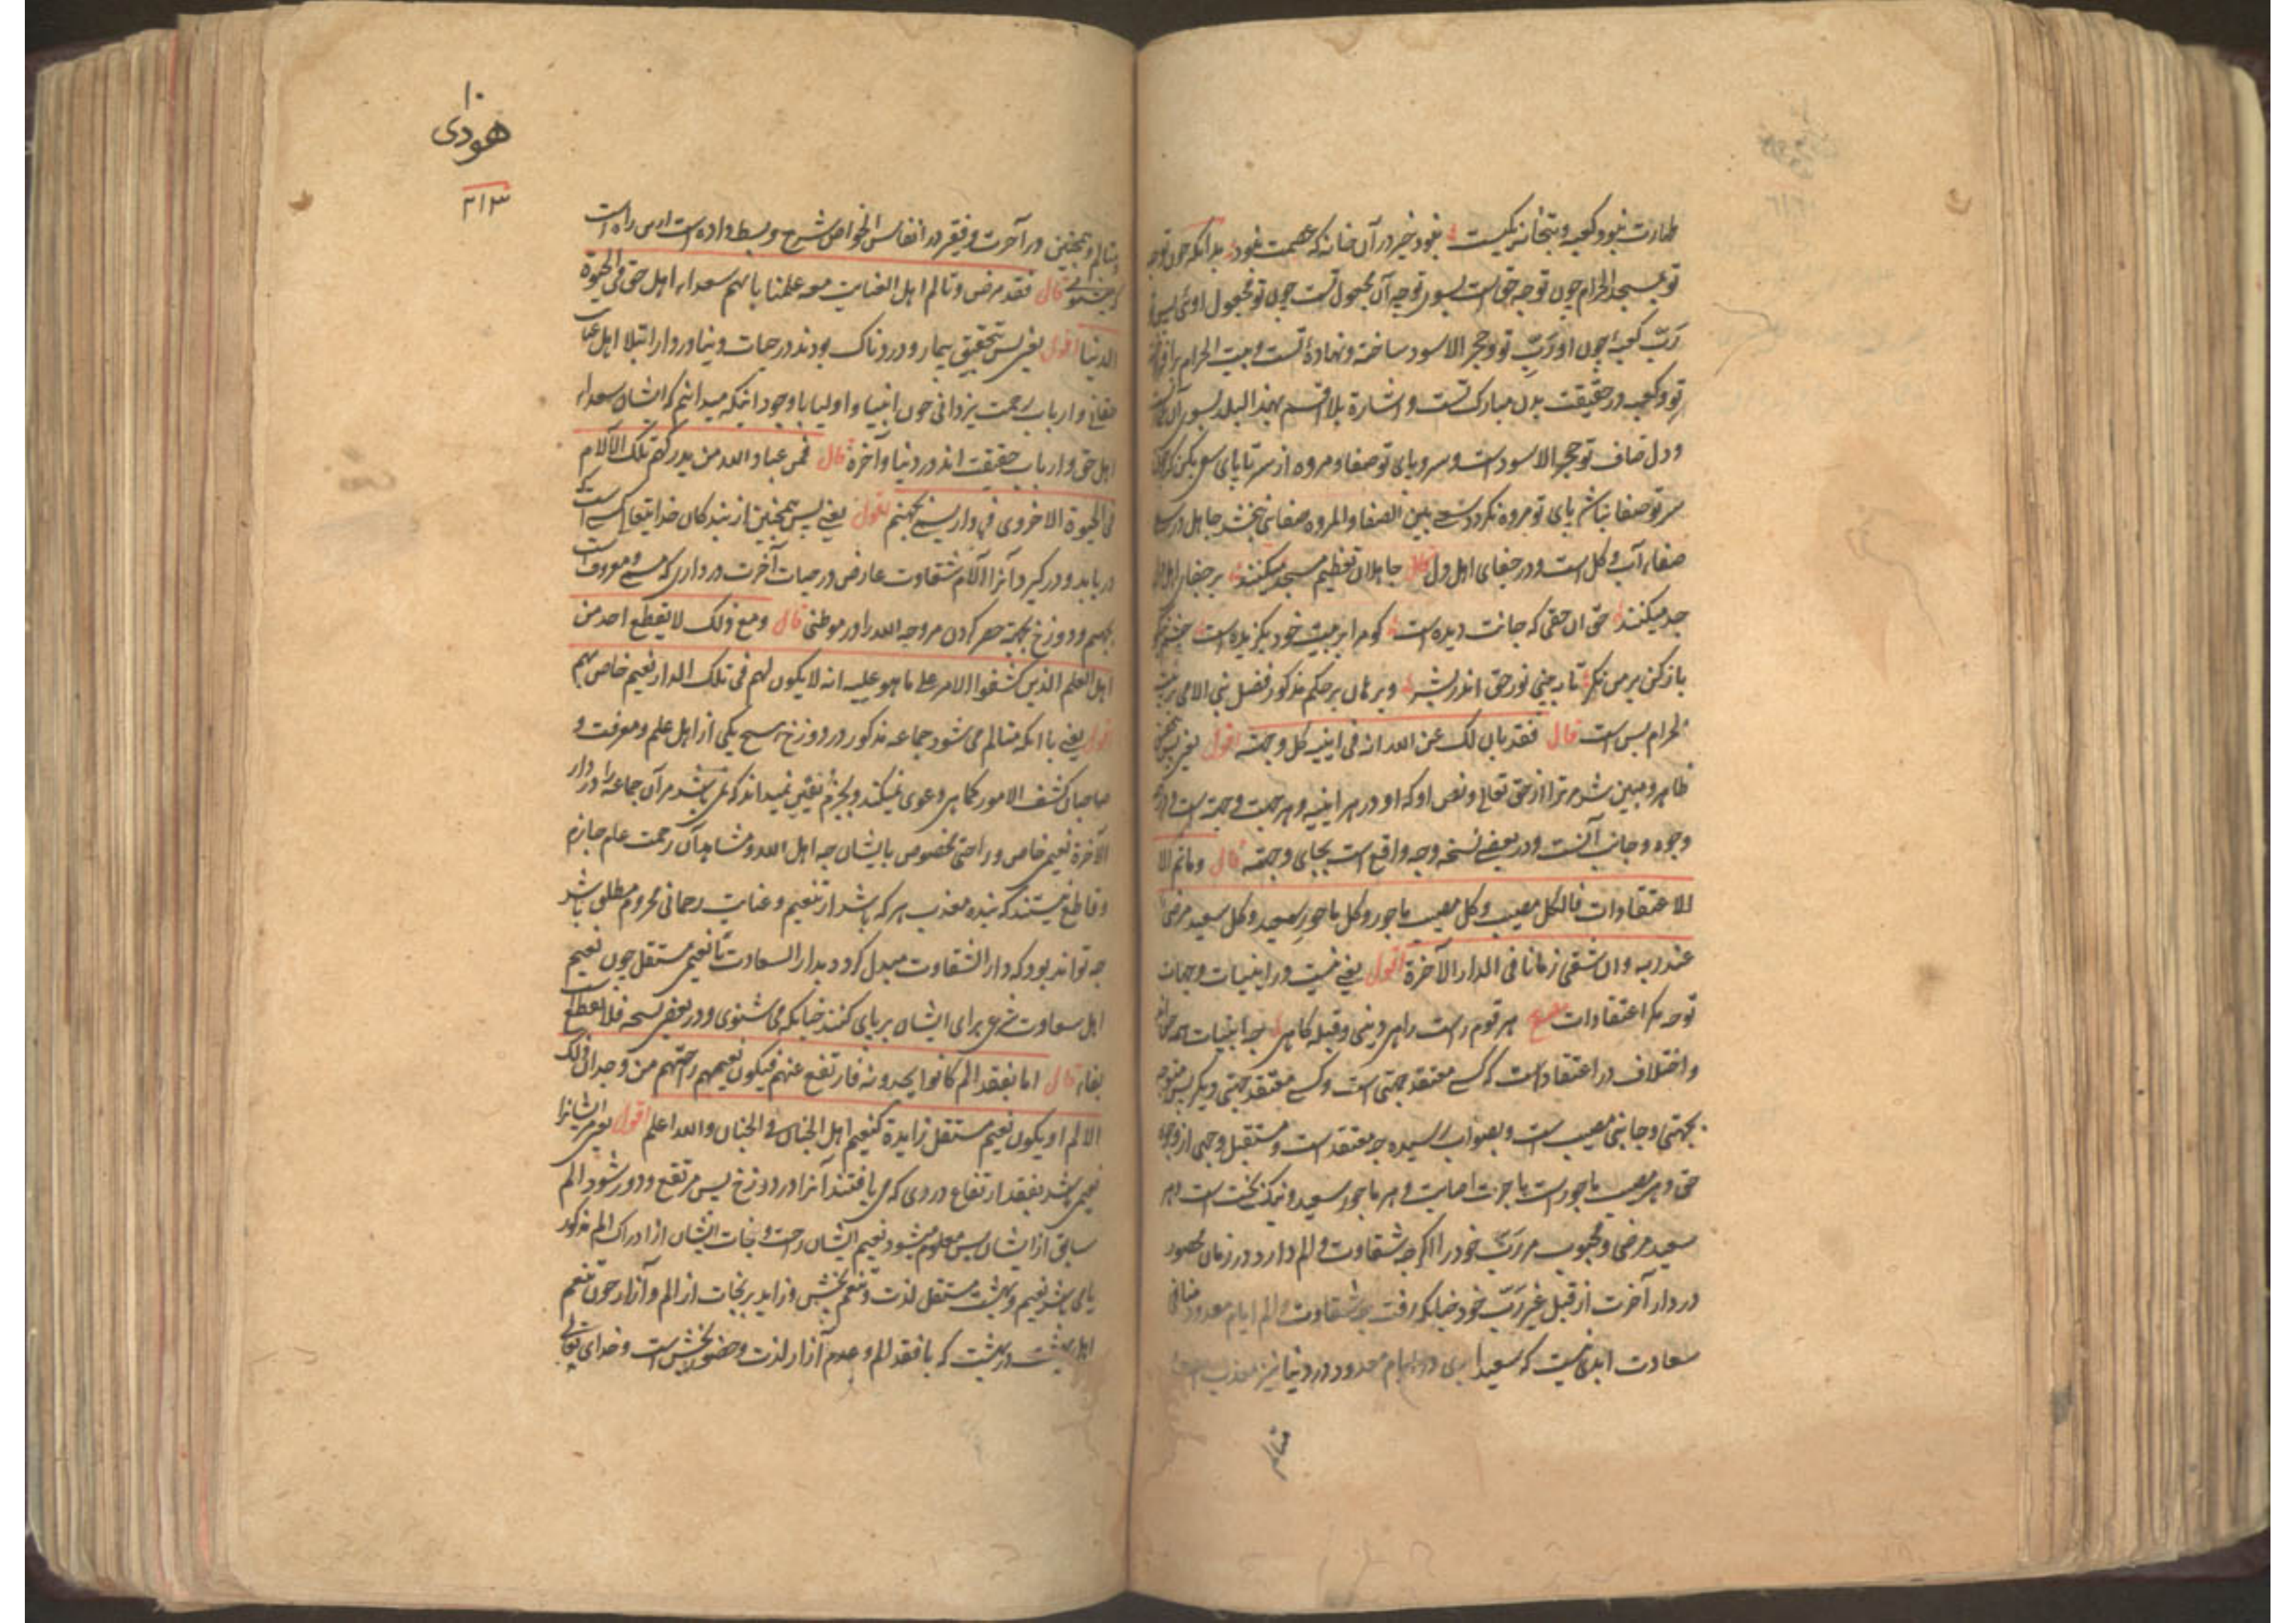 طهارت نبود کعبه و بتخانه یکیست نبود خیر در آن خانه که عصمت نبود بدانکه چون توجه
تو بمسجد الحرام چون توجه حق است بسوی توجه آن مجعول تست چون تو مجعول اوئی پس
رَبّ کعبه چون او رَبّ تو و حجر الاسود ساخته و نهاده تست و بیت الحرام
تو و کعبه در حقیقت بدن مبارک تست و اشارة بلا اقسم بهذا البلد بسوی آن
و دل صاف تو حجر الاسود است و سر و پای تو صفا و مروه از سر تا پای سعی بکن که
سر تو صفا نباشد پای تو مروه نگردد سعی بین الصفا والمروه صفائی نبخشد جاهل در
صفاء آب و گل است و در جفای اهل دل جاهلان تعظیم مسجد میکنند بر جفای اهل دل
جد میکنند حق ان حقی که جانت دیده است کو مرا بر بیت خود بگزیده است چشم نیکو
باز کن بر من نگر تا به بینی نور حق اندر بشر و برهان بر حکم مذکور فضل بنی الامی بر بیت
الحرام بس است قال فقد بان لک عن الله انه فی اینیه کل وجهه اقول یعنی پس
ظاهر و مبین شد مر ترا از حق تعالی و نص او که او در هر اینیه و هر جهت و جهه است و در
وجوه و جانب آنست و در بعضی نسخه وجه واقع است بجای وجهه قال وماثم الا
الاعتقادات فالکل مصیب وکل مصیب ماجور وکل ماجور سعید وکل سعید مرضی
عند ربه وان شقی زمانا فی الدار الآخرة اقول یعنی نیست در اینیات و جهات
توجه مگر اعتقادات مصرع هر قوم راست راهی دینی و قبله گاهی چه اینیات همه حق اند
و اختلاف در اعتقاد است که کسی معتقد جهتی است و کسی معتقد جهتی دیگر پس متوجه
بجهتی و جانبی مصیب است و بصواب رسیده چه معتقد است و مستقبل وجهی از وجوه
حق و هر مصیب ماجور است باجرت اصابت و هر ماجور سعید و نیک بخت است و هر
سعید مرضی و محبوب مر رَبّ خود را اگرچه شقاوت و الم دارد در زمان محصور
در دار آخرت از قبل غیر رَبّ خود چنانکه رفت چه شقاوت و الم ایام معدود منافی
سعادت ابدی نیست که سعید ابدی در ایام معدود در دنیا نیز معذب است
متالم
۱۰
هودی
۲۱۳
و متالم و همچنین در آخرت و فقیر در انفاس الخواص شرح و بسط داده است
قال فقد مرض وتالم اهل العنایت مع علمنا بانهم سعداء اهل حق فی الحیوة
الدنیا اقول یعنی پس بتحقیق بیمار و دردناک بودند در حیات دنیا و در دار ابتلا اهل عنایت
حقانی و ارباب رحمت یزدانی چون انبیا و اولیا با وجود اینکه میدانیم که ایشان سعداء
اهل حق و ارباب حقیقت اند در دنیا و آخرة قال فمن عباد الله من یدرکهم تلک الآلام
فی الحیوة الاخروی فی دار یسمی بجهنم اقول یعنی پس همچنین از بندگان خدایتعالی کسی است که
دریابد و درگیرد آنرا آلام شقاوت عارض در حیات آخرت در داری که مسمی و معروف است
بجهنم و دوزخ بجهة حصر کردن مر وجه الله را در موطنی قال ومع ذلک لا یقطع احد من
اهل العلم الذین کشفوا الامر علی ما هو علیه انه لا یکون لهم فی تلک الدار نعیم خاص بهم
اقول یعنی باانکه متالم می شود جماعه مذکور در دوزخ هیچ یکی از اهل علم و معرفت و
صاحبان کشف الامور کماهی دعوی نمیکند و بجزم و یقین نمیداند که نمی باشد مر آن جماعه را در دار
الآخرة نعیمی خاص و راحتی مخصوص بایشان چه اهل الله و مشاهدان رحمت عام جازم
و قاطع نیستند که بنده معذب هر که باشد از تنعیم و عنایت رحمانی محروم مطلق باشد
چه تواند بود که دار الشقاوت مبدل گردد بدار السعادت تا نعیمی مستقل چون نعیم
اهل سعادت شرعی برای ایشان برپای کنند چنانکه می شنوی و در بعضی نسخه فلا یقطع است
بفاء قال اما بفقد الم کانوا یجدونه فارتفع عنهم فیکون نعیمهم راحتهم من وجدان ذلک
الالم او یکون نعیم مستقل زایدة کنعیم اهل الجنان فی الجنان والله اعلم اقول یعنی مر ایشانرا
نعیمی باشد بفقد ارتفاع دردی که می یافتند آنرا در دوزخ پس مرتفع و دور شود الم
سابق از ایشان پس معلوم میشود نعیم ایشان راحت و نجات ایشان از ادراک الم مذکور
یا می باشد نعیم و بهشت مستقل لذت و تنعم بخش و زاید بر نجات از الم و آزار چون تنعم
اهل بهشت در بهشت که با فقد الم و عدم آزار لذت و حضور بخش است و خدای تعالی